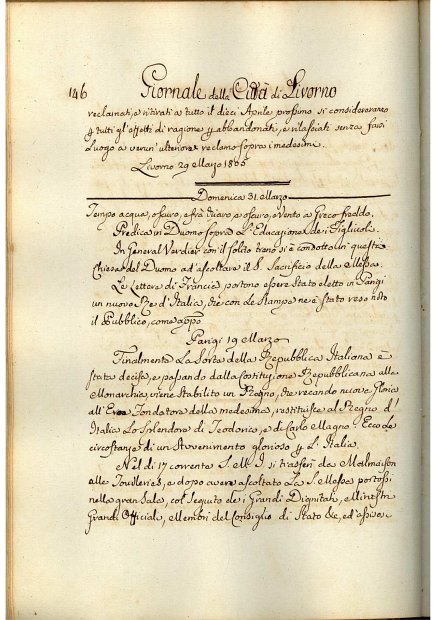 146 Giornale della Città di Livorno
reclamati, e ritirati a tutto il dieci Aprile prossimo si considereranno
p tutti gl'effetti di ragione p abbandonati, e rilasciati senza farsi
Luogo a verun' ulteriore reclamo sopra i medesimi.
Livorno 29 Marzo 1805
Domenica 31. Marzo
Tempo acqua, oscuro, e frà chiaro e oscuro, e vento a Greco freddo.
Predica in Duomo sopra L'Educazione dei Figliuoli.
In General Verdier con il solito treno si è condotto in questa
Chiesa del Duomo ad ascoltare il S. Sacrifizio della Messa.
Le Lettere di Francia portono essere stato eletto in Parigi
un nuovo Rè d'Italia, che con Le Stampe ne è stato reso noto
il Pubblico, come app.o
Parigi 19 Marzo
Finalmente La Sorte della Repubblica Italiana è
stata decisa, e passando dalla Costituzione Repubblicana alla
Monarchia, viene stabilito un Regno, che recando nuova Gloria
all'Eroe Fondatore della medesima, restituisce al Regno d'
Italia Lo Splendore di Teodorico, e di Carlo Magno. Ecco Le
circostanze di un Avvenimento glorioso p L'Italia.
Nel dì 17 corrente S. M. I. si trasferì da Malmaison
alle Touileries, e dopo avere ascoltato La S. Messa portossi
nella gran Sala, col seguito dei Grandi Dignitari, Ministri
Grandi Offiziali, e Membri del Consiglio di Stato &c, ed assiso